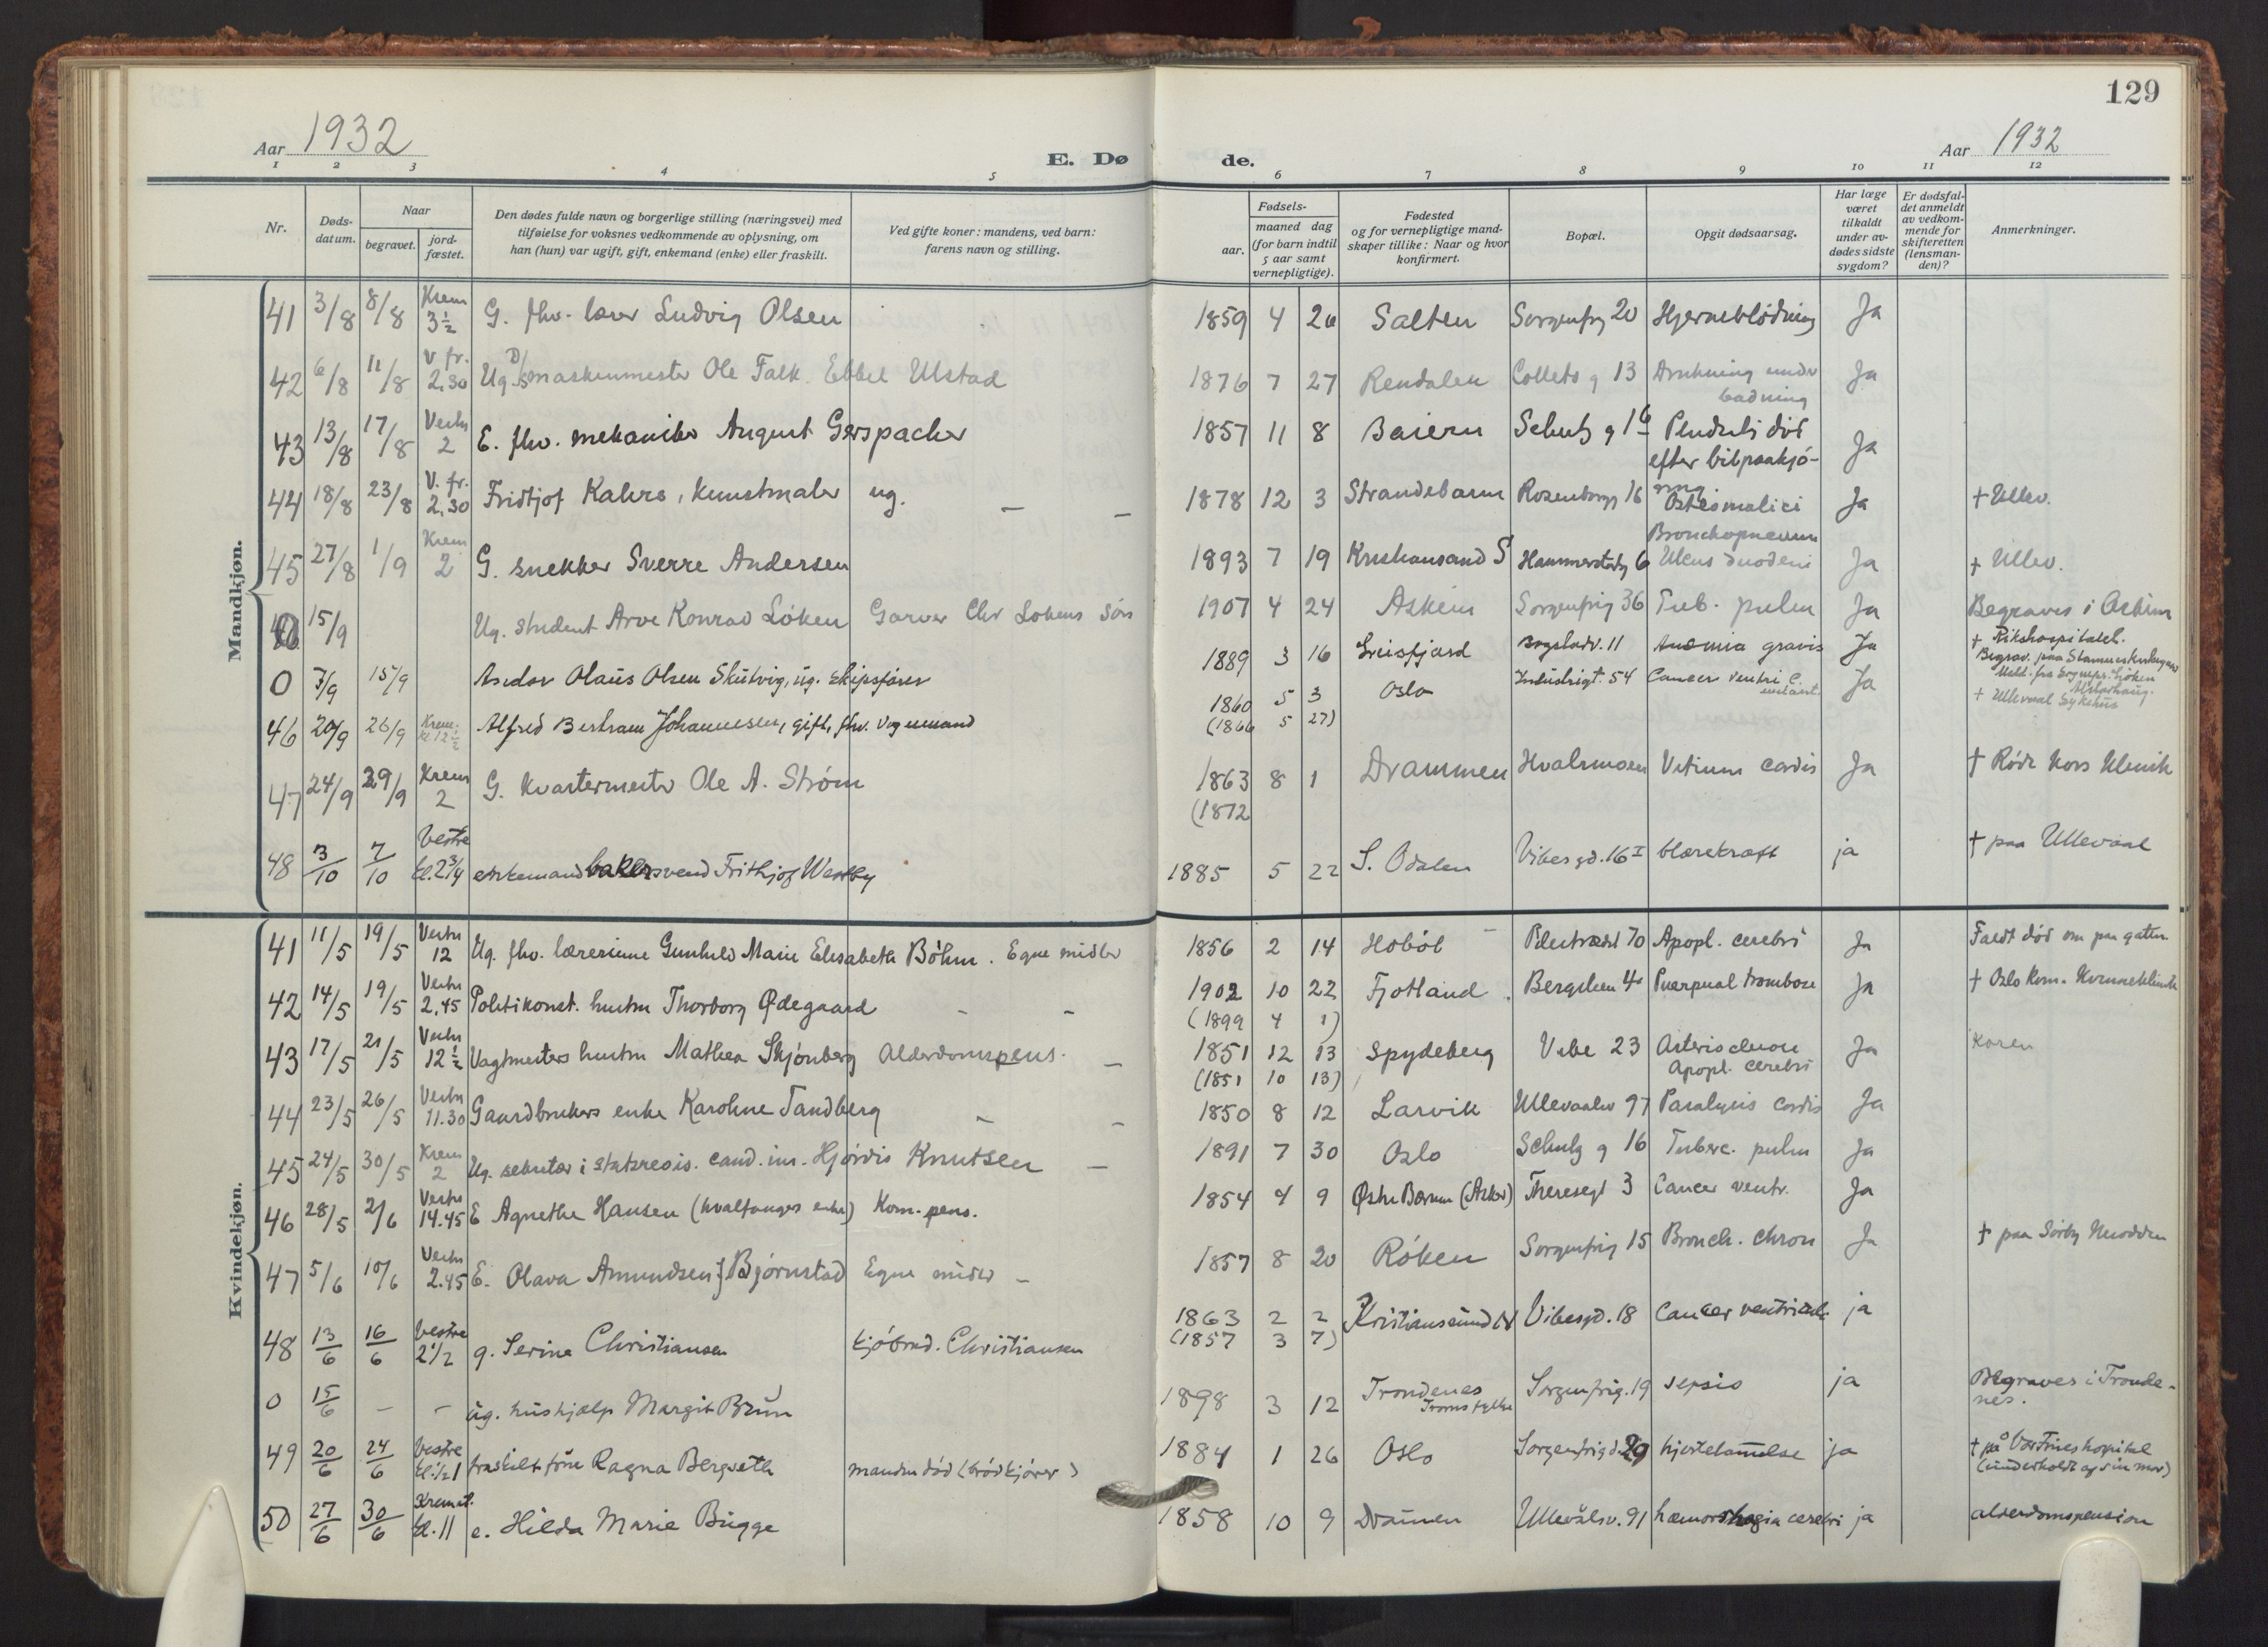 129
Aar 1932
E. Dø de.
Aar 1932
1 2 3 4 5 6 7 8 9 10 11 12
Nr.
Døds-datum.
Naar
begravet.
jord-fæstet.
Den dødes fulde navn og borgerlige stilling (næringsvei) med
tilføielse for voksnes vedkommende av oplysning, om
han (hun) var ugift, gift, enkemand (enke) eller fraskilt.
Ved gifte koner: mandens, ved barn:
farens navn og stilling.
Fødsels-
aar.
maaned dag
(for barn indtil
5 aar samt
vernepligtige).
Fødested
og for vernepligtige mand-
skaper tillike: Naar og hvor
konfirmert.
Bopæl.
Opgit dødsaarsag.
Har læge
været
tilkaldt
under av-
dødes sidste
sygdom?
Er dødsfal-
det anmeldt
av vedkom-
mende for
skifteretten
(lensman-
den)?
Anmerkninger.
Mandkjøn.
41 3/8 8/8 Krem 3½ G. fhv. lærer Ludvig Olsen 1859 4 26 Salten Sorgenfrg 20 Hjerneblødning Ja
42 6/8 11/8 V fr. 2.30 Ug. D/S maskinmester Ole Falk Ebbel Ulstad 1876 7 27 Rendalen Collets g 13 Drukning under badning Ja
43 13/8 17/8 Vestre 2 E. fhv. mekaniker August Gerspacher 1857 11 8 Baiern Schultz g 16 Pludseli død efter bilpaakjøring Ja
44 18/8 23/8 V. fr. 2.30 Fridtjof Kalers, kunstmaler ug. – – 1878 12 3 Strandebarm Rosenborgg 16 Bronchopneum Ja † Ullev.
45 27/8 1/9 Krem 2 G. snekker Sverre Andersen 1893 7 19 Kristiansand S Hammerstadg 6 Ulcus duodeni Ja † Ullev.
0 15/9 Ug. student Arve Konrad Løken Garver Chr Løkens søn 1907 4 24 Askim Sorgenfrig 36 Tub. pulm Ja Begraves i Askim
0 7/9 15/9 Asdor Olaus Olsen Skutvig, ug. skipsfører 1889 3 16 Leisfjord Bogstadv. 11 Anæmia gravis Ja † Rikshospitalet.
46 20/9 26/9 Krem. kl 12½ Alfred Bertram Johannesen, gift, fhv. vognmand 1860 5 3 (1866 5 27) Oslo Industrigt. 54 Cancer ventri c. Ja † Ullevaal Sykehus
47 24/9 29/9 Krem 2 G. Kvartermester Ole A. Strøm 1863 8 1 (1872 Drammen Hvalsmoen Vitium cordis Ja † Røde Kors Klinik
48 3/10 7/10 Vestre kl. 2¾ enkemand bakersvend Frithjof Westby 1885 5 22 S. Odalen Vibes gd. 16 I blærekræft ja † paa Ullevaal
Kvindekjøn.
41 11/5 19/5 Vestre 12 Ug. fhv. lærerinne Gunhild Marie Elisabeth Böhm. Egne midler 1856 2 14 Hobøl Pilestrædet 70 Apopl. cerebri Ja Faldt død om paa gaten
42 14/5 19/5 Vestre 2.45 Politikonst. hustru Thorborg Ødegaard – – 1902 10 22 (1899 4 1) Fjotland Bergslien 4 Puerpual trombose Ja † Oslo Kom. Kvinneklinik
43 17/5 21/5 Vestre 12½ Vagtmesters hustru Mathea Skjønberg Alderdomspens. – 1851 12 13 (1851 10 13) Spydeberg Vibe 23 Arteriosclerose Apopl. cerebri Ja Karen
44 23/5 26/5 Vestre 11.30 Gaardbrukers enke Karoline Tandberg – – 1850 8 12 Larvik Ullevaalsv 97 Paralysis cordis Ja
45 24/5 30/5 Krem 2 Ug. sekretær i statsrevis. cand. jur. Hjørdis Knutsen – 1891 7 30 Oslo Schultz g 16 Tuberc. pulm Ja
46 28/5 2/6 Vestre 14.45 E Agnethe Hansen (hvalfanges enke) Kom. pens. 1854 4 9 Østre Bærum (Asker) Theresegt 3 Cancer ventr. Ja
47 5/6 10/6 Vestre 2.45 E. Olava Amundsen f. Bjørnstad Egne midler – 1857 8 20 Røken Sorgenfrig 15 Bronch. chron Ja † paa Sørby Nesodden
48 13/6 16/6 Vestre 2½ g. Serine Christiansen kjøbmd. Christiansen 1863 2 2 (1857 3 7) Kristiansund N Vibesgd. 18 Cancer ventriculi ja
0 15/6 – – ug. hushjælp Margit Brun 1898 3 12 Trondenes Troms fylke Sorgenfrig. 19 sepsis ja Begraves i Trondenes.
49 20/6 24/6 Vestre kl. ½1 fraskilt frue Ragna Bergseth manden død (brødkjører) 1884 1 26 Oslo Sorgenfrigd. 29 hjertelammelse ja † på Vor Frues hospital (underholdt av sin mor)
50 27/6 30/6 Kremat. kl. 11 e. Hilda Marie Bugge 1858 10 9 Drammen Ullevålsv. 91 hæmorrhagia cerebri ja alderdomspension